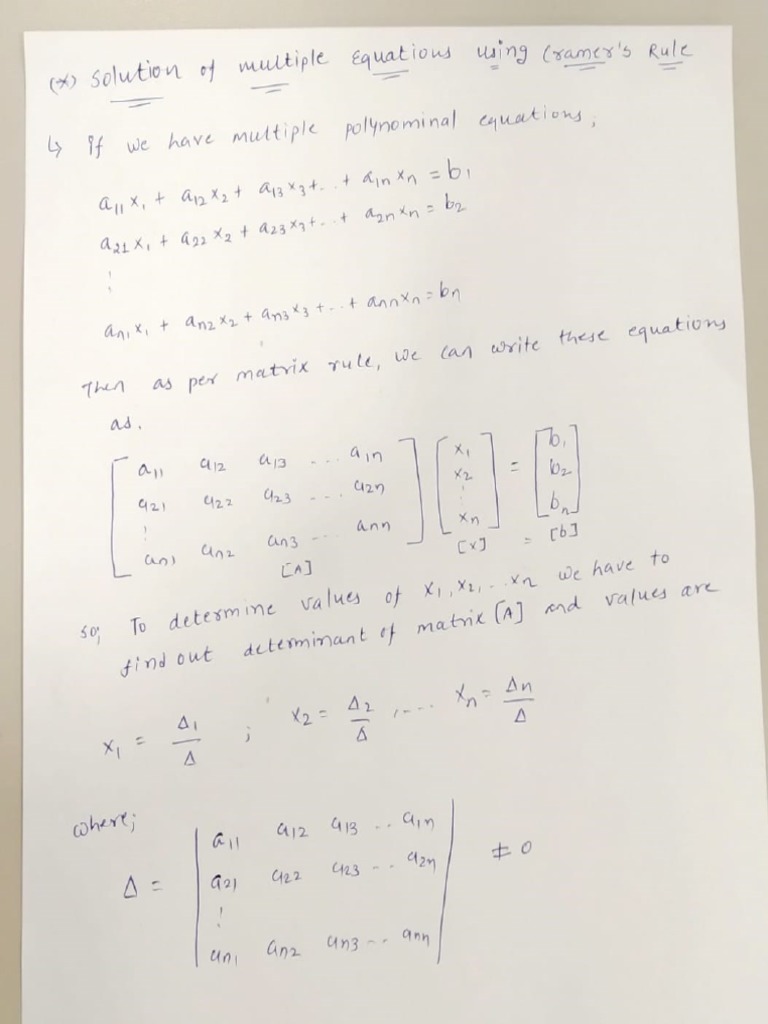 (*) Solution of multiple Equations using Cramer's Rule
↳ If we have multiple polynominal equations;
a11 x1 + a12 x2 + a13 x3 + .. + a1n xn = b1
a21 x1 + a22 x2 + a23 x3 + .. + a2n xn = b2
⋮
an1 x1 + an2 x2 + an3 x3 + .. + ann xn = bn
Then as per matrix rule, we can write these equations
as.
[ a11 a12 a13 ... a1n ] [ x1 ] = [ b1 ]
[ a21 a22 a23 ... a2n ] [ x2 ] = [ b2 ]
⋮ ⋮
[ an1 an2 an3 ... ann ] [ xn ] [ bn ]
[A] [x] = [b]
so; To determine values of x1, x2, ... xn we have to
find out determinant of matrix [A] and values are
x1 = Δ1/Δ ; x2 = Δ2/Δ , .... xn = Δn/Δ
where;
| a11 a12 a13 .. a1n |
Δ = | a21 a22 a23 .. a2n | ≠ 0
⋮
| an1 an2 an3 .. ann |